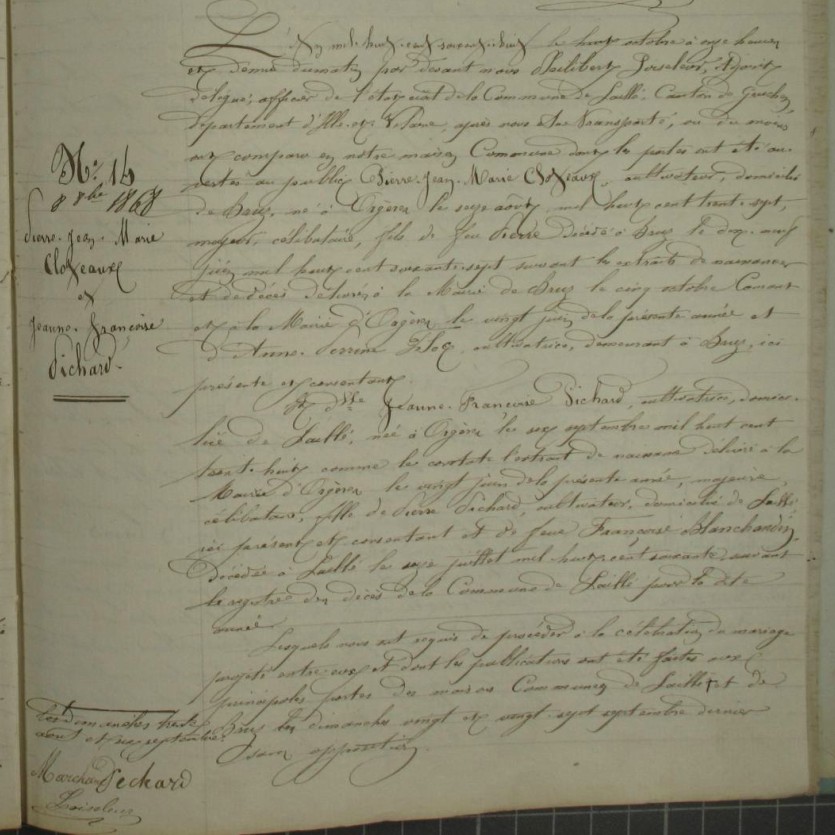 N° 14
8 8bre 1868
Pierre-Jean-Marie
Clozeaux
et
Jeanne-Françoise
Pichard.
L'an mil huit cent soixante-huit le huit octobre à onze heures
et demie du matin par devant nous Philibert Loiseleur, Adjoint
délégué, officier de l'état civil de la Commune de Laillé, Canton de Guichen
département d'Ille-et-Vilaine, après nous être transporté,
ont comparu en notre maison Commune dont les portes ont été ou-
vertes au public Pierre-Jean-Marie Clozeaux, cultivateur, domicilié
de Bruz, né à Orgères le seize août mil huit cent trente-sept,
majeur, célibataire, fils de feu Pierre décédé à Bruz le dix-neuf
juin mil huit cent soixante-sept suivant les extraits de naissance
et de décès délivrés à la Mairie de Bruz le cinq octobre Courant
et à la Mairie d'Orgères le vingt juin de la présente année et
d'Anne-Perrine cultivatrice, demeurant à Bruz, ici
présente et consentante.
Et dlle Jeanne-Françoise Pichard, cultivatrice, domici-
liée de Laillé, née à Orgères le six septembre mil huit cent
trente-huit comme le constate l'extrait de naissance délivré à la
Mairie d'Orgères le vingt juin de la présente année, majeure,
célibataire, fille de Pierre Pichard, cultivateur, domicilié de Laillé,
ici présent et consentant et de feue Françoise Blanchandin
Décédée à Laillé le seize juillet mil huit cent soixante suivant
le registre des décès de la Commune de Laillé pour la dite
année.
Lesquels nous ont requis de procéder à la célébration du mariage
projeté entre eux et dont les publications ont été faites aux
principales portes des maisons Communes de Laillé et de
Bruz les dimanches vingt et vingt-sept septembre dernier
sans opposition.
Les dimanches trente
août et six septembre.
Marchand Pichard
Loiseleur